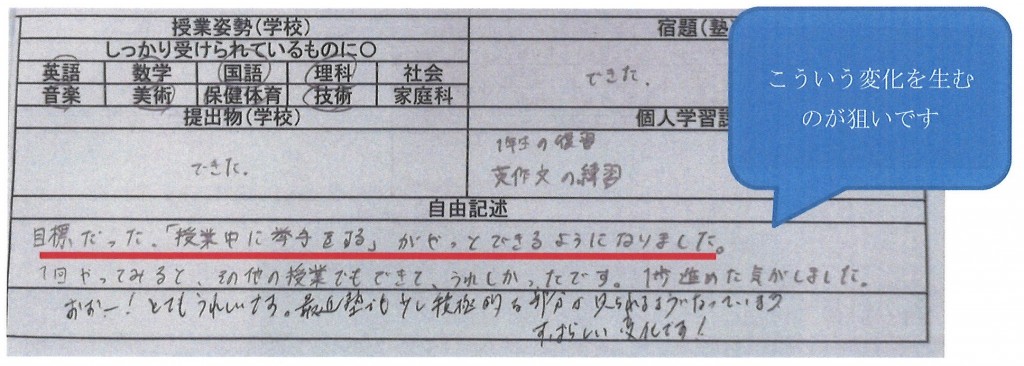 授業姿勢(学校)
宿題(塾
しっかり受けられているものに○
英語 数学 国語 理科 社会
できた.
音楽 美術 保健体育 技術 家庭科
提出物(学校)
個人学習課
できた.
1年生の復習
英作文の練習
自由記述
目標だった、「授業中に挙手をする」がやっとできるようになりました。
1回やってみると、その他の授業でもできて、うれしかったです。1歩進めた気がしました。
おおー!とてもうれしいです。最近塾でも少し積極的な部分が見られるようになっています
すばらしい変化です!
こういう変化を生む
のが狙いです